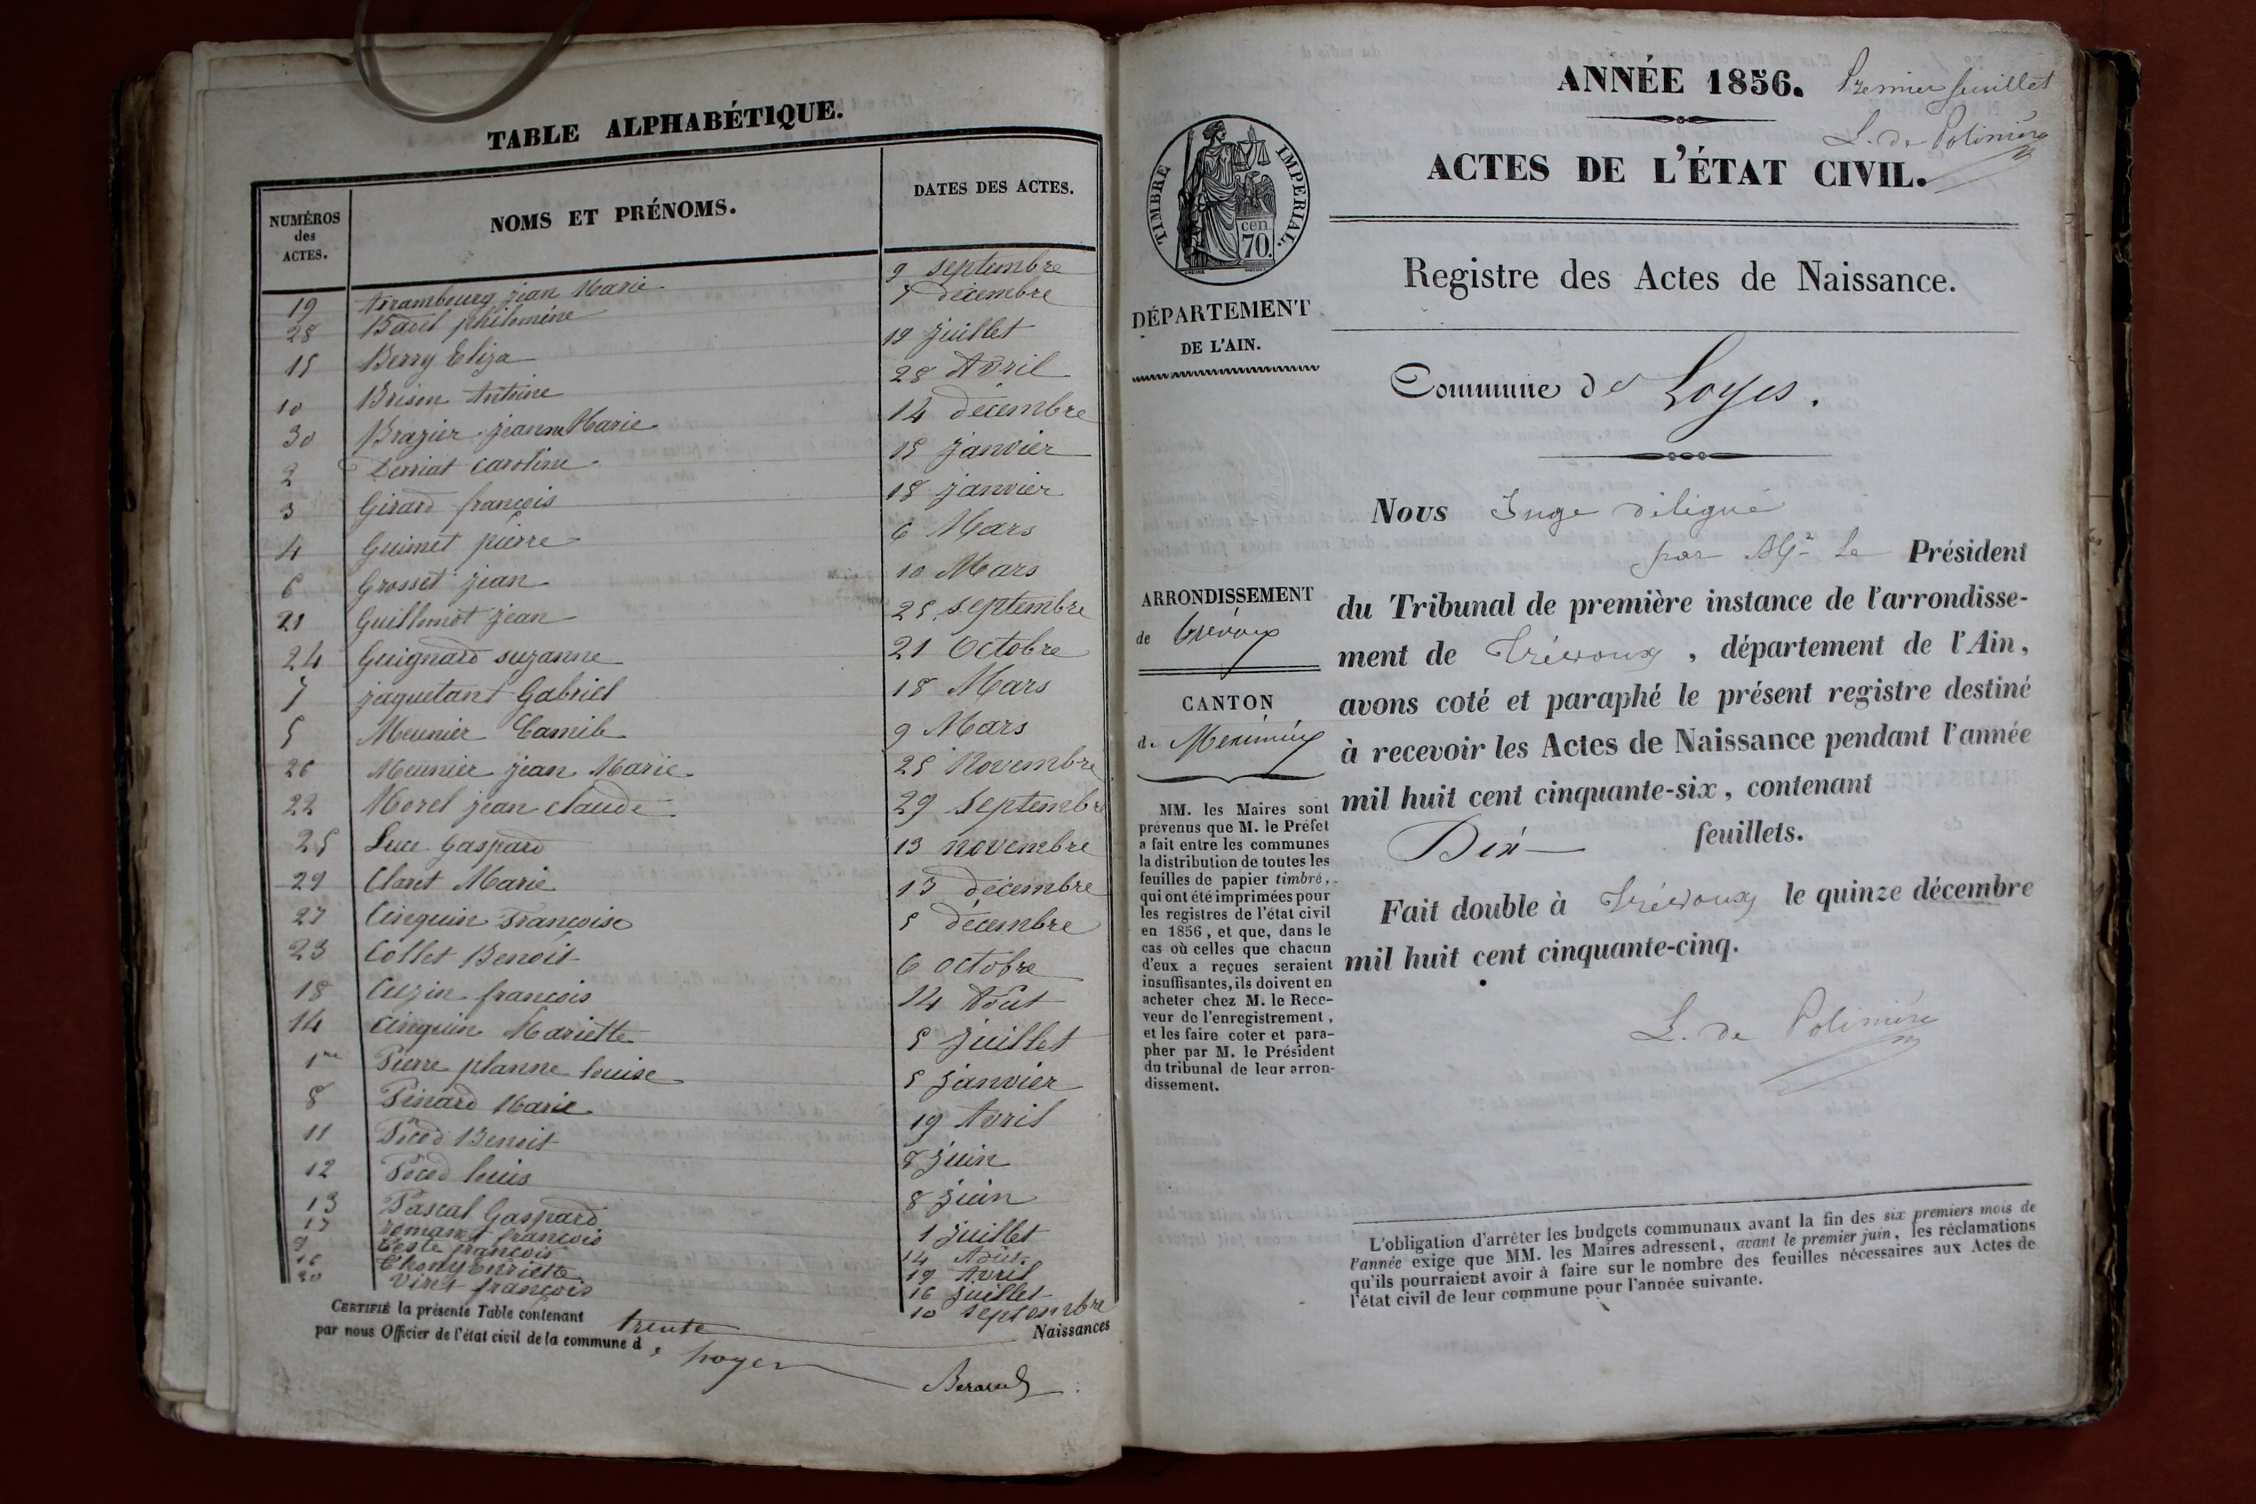 TABLE ALPHABÉTIQUE.
NUMÉROS des ACTES. NOMS ET PRÉNOMS. DATES DES ACTES.
19 Arrambourg jean Marie 9 septembre
28 philomène 7 décembre
15 Berry Eliza 19 juillet
10 Brison Antoine 28 Avril
30 Brazier jeanne Marie 14 décembre
2 Derriat caroline 15 janvier
3 Girard françois 18 janvier
4 Guimet pierre 6 Mars
6 Grosset jean 10 Mars
21 Guillemot jean 25 septembre
24 Guignard suzanne 21 Octobre
7 jaquetant Gabriel 18 Mars
5 Meunier Camile 9 Mars
26 Meunier jean Marie 25 Novembre
22 Morel jean claude 29 septembre
25 Luce Gaspard 13 novembre
29 Claret Marie 13 décembre
27 Cinquin Françoise 5 décembre
23 Collet Benoit 6 octobre
18 Cuzin françois 14 Août
14 Cinquin Mariette 5 juillet
1re Pierre planne louise 5 janvier
8 Pinard Marie 19 Avril
11 Pôced Benoit 8 juin
12 Pôced louis 8 juin
13 Pascal Gaspard 1 juillet
17 romanet françois 14 Août
9 Teste françois 19 Avril
16 Thony enriette 16 juillet
20 Viret françois 10 septembre
CERTIFIÉ la présente Table contenant trente Naissances
par nous Officier de l'état civil de la commune de Loyes
ANNÉE 1856. Premier feuillet
L. de Polinière
ACTES DE L'ÉTAT CIVIL.
TIMBRE IMPERIAL.
cen
70.
Registre des Actes de Naissance.
DÉPARTEMENT
DE L'AIN.
Commune de Loyes.
Nous Juge délégué
par Mr le Président
du Tribunal de première instance de l'arrondisse-
ment de Trévoux, département de l'Ain,
avons coté et paraphé le présent registre destiné
à recevoir les Actes de Naissance pendant l'année
mil huit cent cinquante-six, contenant
Dix feuillets.
Fait double à Trévoux le quinze décembre
mil huit cent cinquante-cinq.
L. de Polinière
ARRONDISSEMENT
de Trévoux
CANTON
de Meximieux
MM. les Maires sont
prévenus que M. le Préfet
a fait entre les communes
la distribution de toutes les
feuilles de papier timbré,
qui ont été imprimées pour
les registres de l'état civil
en 1856, et que, dans le
cas où celles que chacun
d'eux a reçues seraient
insuffisantes, ils doivent en
acheter chez M. le Rece-
veur de l'enregistrement,
et les faire coter et para-
pher par M. le Président
du tribunal de leur arron-
dissement.
L'obligation d'arrêter les budgets communaux avant la fin des six premiers mois de
l'année exige que MM. les Maires adressent, avant le premier juin, les réclamations
qu'ils pourraient avoir à faire sur le nombre des feuilles nécessaires aux Actes de
l'état civil de leur commune pour l'année suivante.